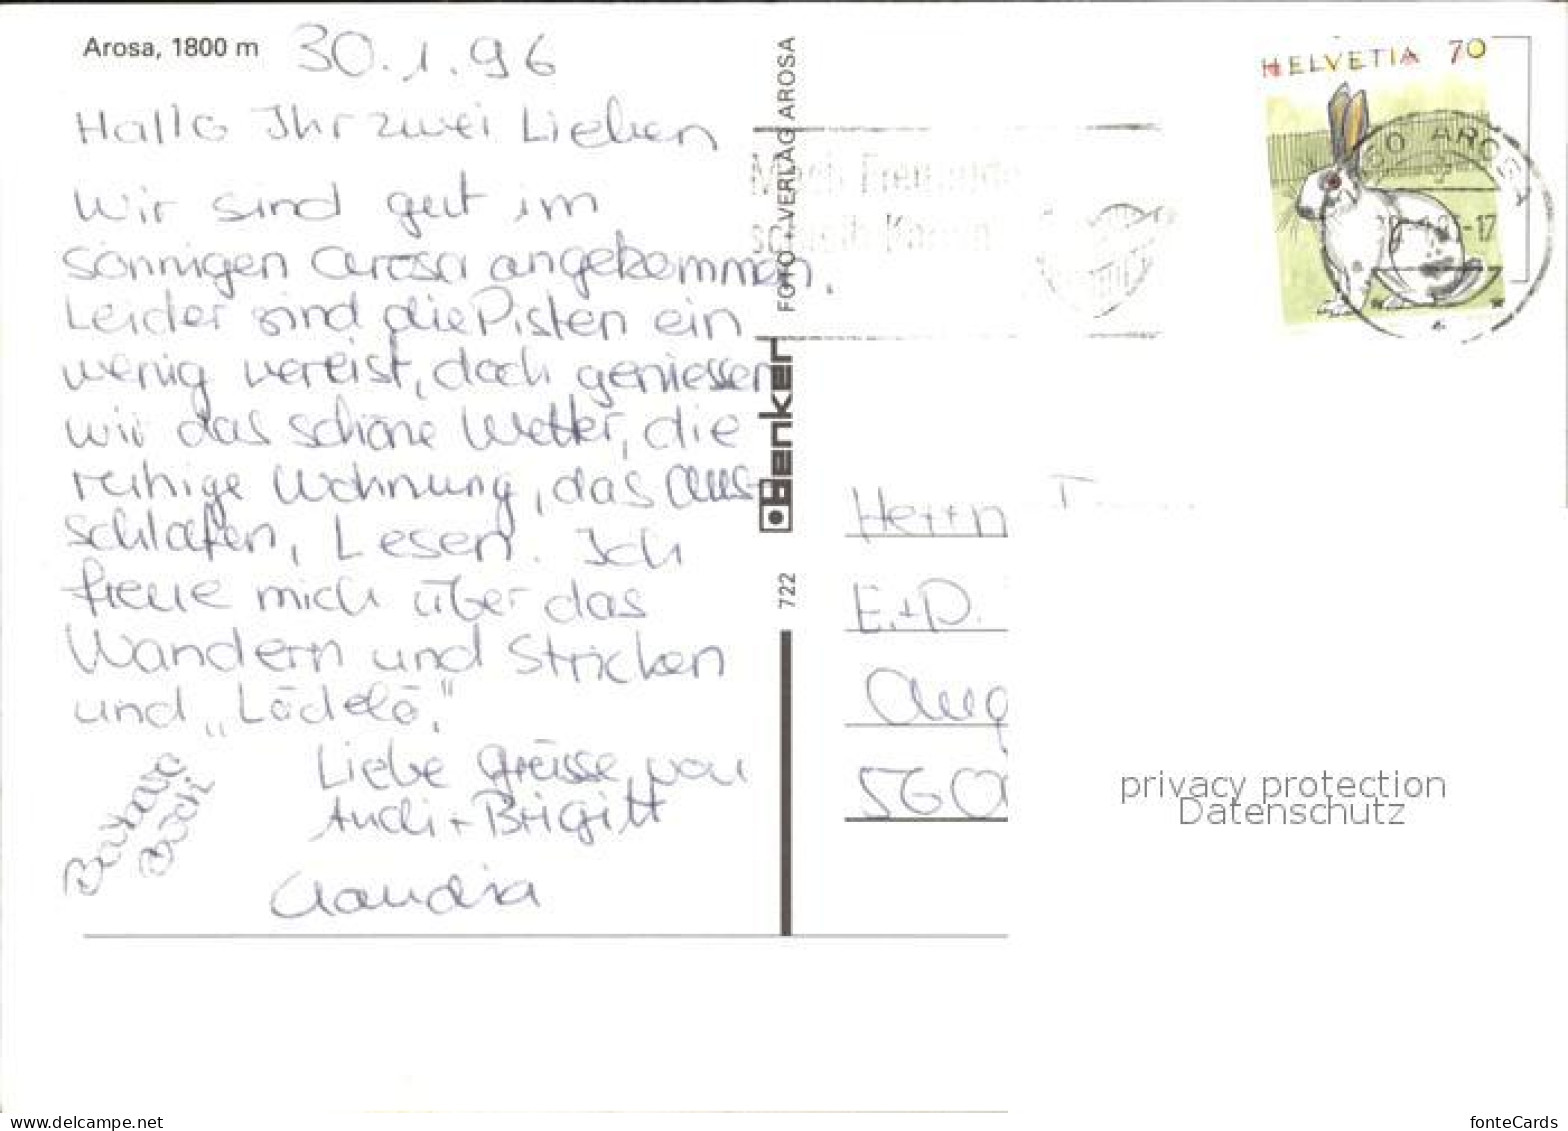 Arosa, 1800 m
30.1.96
Hallo Ihr zwei Lieben
Wir sind gut im
sonnigen Arosa angekommen.
Leider sind die Pisten ein
wenig vereist, doch geniessen
wir das schöne Wetter, die
ruhige Wohnung, das Aus-
schlafen, Lesen. Ich
freue mich über das
Wandern und Stricken
und „Lödelö."
Liebe Grüsse von
Andi + Brigitt
Claudia
Barbara
FOTO+VERLAG AROSA
Benker
722
HELVETIA 70
AROSA
Herrn
E.+D.
Aug
560
privacy protection
Datenschutz
www.delcampe.net
fonteCards